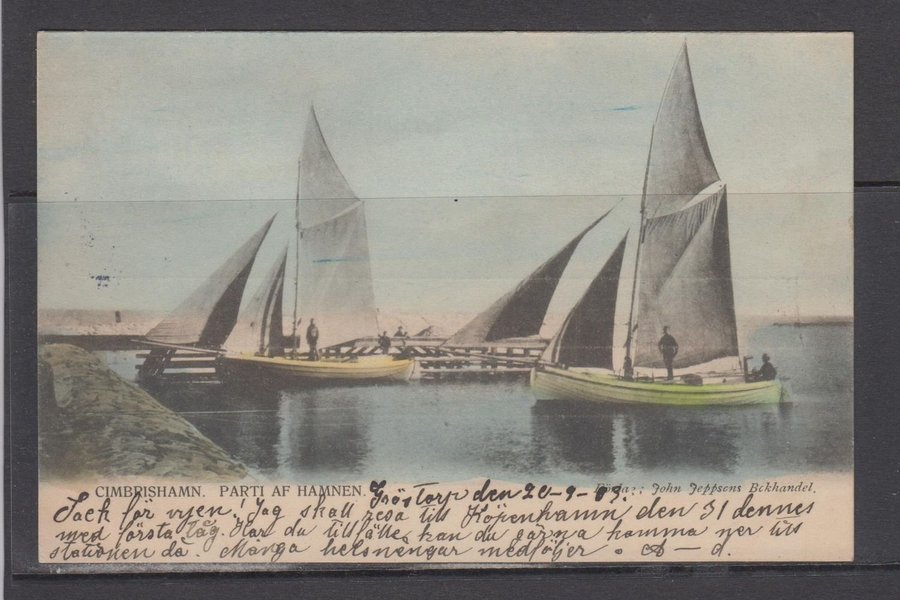 CIMBRISHAMN. PARTI AF HAMNEN. den 20-9-03. John Jeppsons Bckhandel.
Tack för vyen! Jag skall resa till Köpenhamn den 31 dennes
med första tåg. Har du tillfälle kan du gärna komma ner till
stationen då. Många helsningar medföljer. A-d.